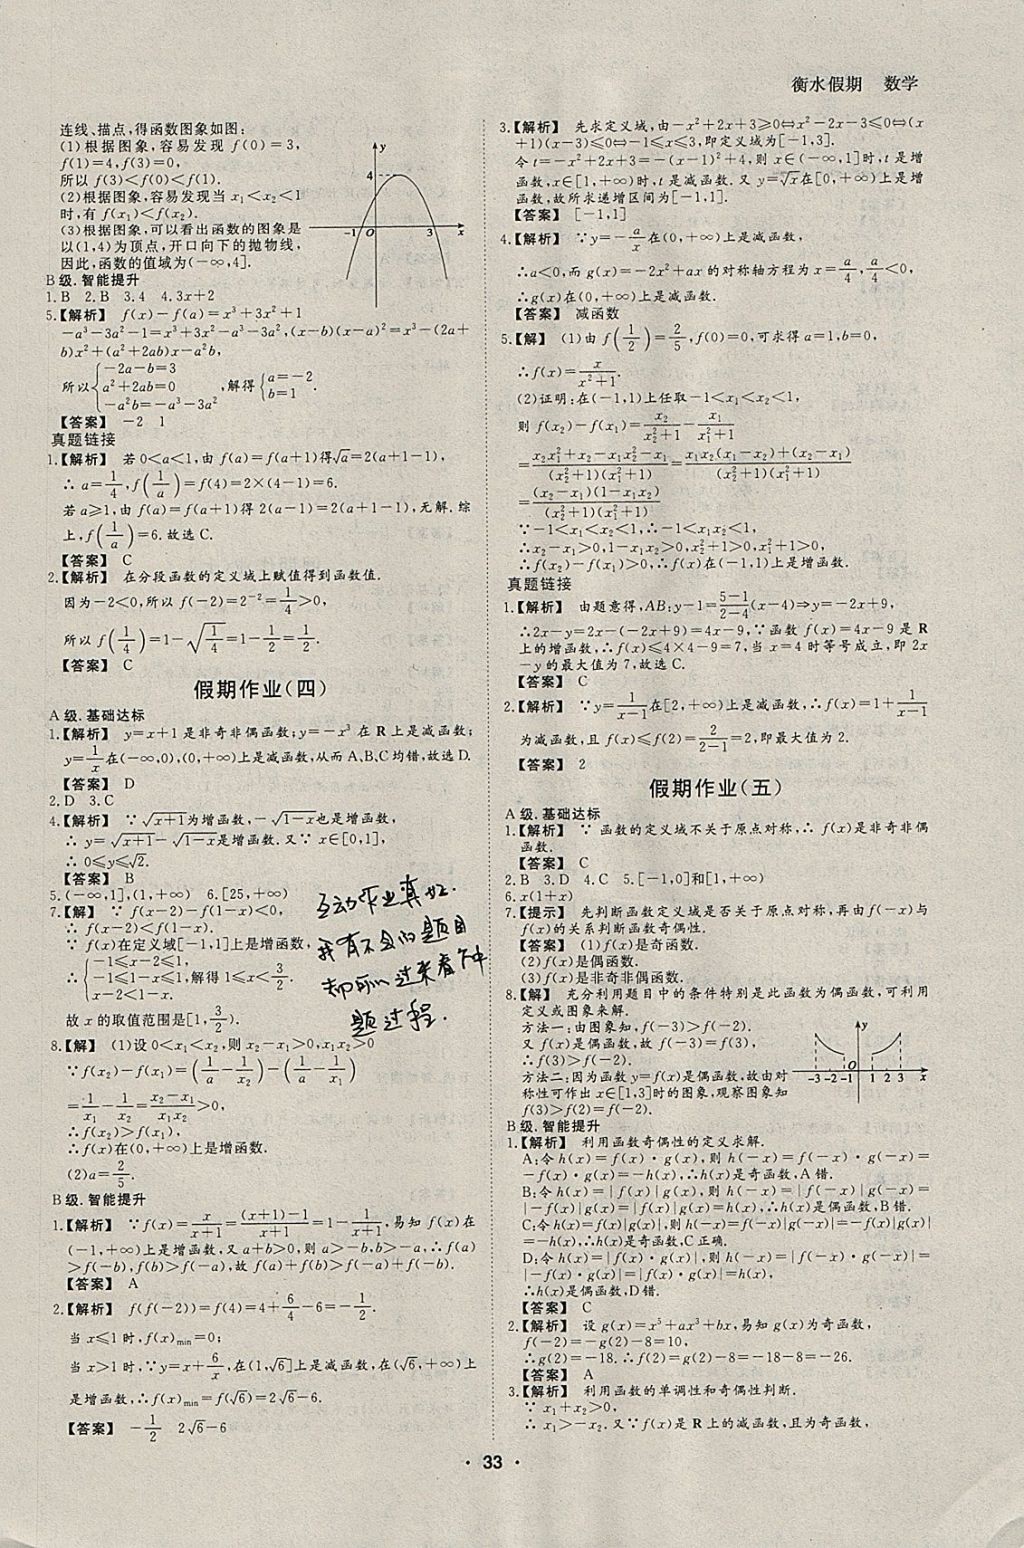 衡水假期 数学
连线、描点,得函数图象如图:
(1)根据图象,容易发现 f(0)=3,
f(1)=4,f(3)=0,
所以 f(3)<f(0)<f(1).
(2)根据图象,容易发现当 x₁<x₂<1
时,有 f(x₁)<f(x₂).
(3)根据图象,可以看出函数的图象是
以(1,4)为顶点,开口向下的抛物线,
因此,函数的值域为(-∞,4].
y
4
-1 O 3 x
B 级.智能提升
1.B 2.B 3.4 4.3x+2
5.【解析】 f(x)-f(a)=x³+3x²+1
-a³-3a²-1=x³+3x²-a³-3a²,(x-b)(x-a)²=x³-(2a+
b)x²+(a²+2ab)x-a²b,
所以{-2a-b=3 a²+2ab=0 -a²b=-a³-3a² ,解得{a=-2 b=1.
【答案】 -2 1
真题链接
1.【解析】 若 0<a<1,由 f(a)=f(a+1)得√a=2(a+1-1),
∴a=1/4,f(1/a)=f(4)=2×(4-1)=6.
若 a≥1,由 f(a)=f(a+1)得 2(a-1)=2(a+1-1),无解.综
上,f(1/a)=6.故选 C.
【答案】 C
2.【解析】 在分段函数的定义域上赋值得到函数值.
因为-2<0,所以 f(-2)=2⁻²=1/4>0,
所以 f(1/4)=1-√(1/4)=1-1/2=1/2.
【答案】 C
假期作业(四)
A 级.基础达标
1.【解析】 y=x+1 是非奇非偶函数;y=-x³ 在 R 上是减函数;
y=1/x在(-∞,0),(0,+∞)上是减函数,从而 A、B、C 均错,故选 D.
【答案】 D
2.D 3.C
4.【解析】 ∵√(x+1)为增函数,-√(1-x)也是增函数,
∴ y=√(x+1)-√(1-x)是增函数.又∵ x∈[0,1],
∴ 0≤y≤√2.
【答案】 B
5.(-∞,1],(1,+∞) 6.[25,+∞)
7.【解】 ∵ f(x-2)-f(1-x)<0,
∴ f(x-2)<f(1-x).
∵ f(x)在定义域[-1,1]上是增函数,
∴{-1≤x-2≤1, -1≤1-x≤1, x-2<1-x. 解得 1≤x<3/2.
故 x 的取值范围是[1,3/2).
互动作业真好.
我有不会的题目
却所以过来看
题过程.
8.【解】 (1)设 0<x₁<x₂,则 x₂-x₁>0,x₁x₂>0
∵f(x₂)-f(x₁)=(1/a-1/x₂)-(1/a-1/x₁)
=1/x₁-1/x₂=(x₂-x₁)/(x₁x₂)>0,
∴f(x₂)>f(x₁),
∴f(x)在(0,+∞)上是增函数.
(2)a=2/5.
B 级.智能提升
1.【解析】 ∵f(x)=x/(x+1)=((x+1)-1)/(x+1)=1-1/(x+1),易知 f(x)在
(-1,+∞)上是增函数,又 a+b>0,则 a>-b,b>-a,∴f(a)
>f(-b),f(b)>f(-a),故 f(a)+f(b)>f(-a)+f(-b).
【答案】 A
2.【解析】 f(f(-2))=f(4)=4+6/4-6=-1/2.
当 x≤1 时,f(x)min=0;
当 x>1 时,∵y=x+6/x,在(1,√6]上是减函数,在(√6,+∞)上
是增函数,∴f(x)min=f(√6)=2√6-6.
【答案】 -1/2 2√6-6
3.【解析】 先求定义域,由-x²+2x+3≥0⇔x²-2x-3≤0⇔(x
+1)(x-3)≤0⇔-1≤x≤3,即定义域为[-1,3].
令 t=-x²+2x+3=-(x-1)²+4,则 x∈(-∞,1]时,t 是增
函数,x∈[1,+∞)时,t 是减函数.又 y=√x在[0,+∞)上是增
函数,故所求递增区间为[-1,1].
【答案】 [-1,1]
4.【解析】 ∵y=-a/x在(0,+∞)上是减函数,
∴a<0,而 g(x)=-2x²+ax 的对称轴方程为 x=a/4,a/4<0,
∴g(x)在(0,+∞)上是减函数.
【答案】 减函数
5.【解】 (1)由 f(1/2)=2/5,f(0)=0,可求得 a=1,b=0,
∴f(x)=x/(x²+1).
(2)证明:在(-1,1)上任取-1<x₁<x₂<1,
则 f(x₂)-f(x₁)=x₂/(x₂²+1)-x₁/(x₁²+1)
=(x₂x₁²+x₂-x₁x₂²-x₁)/((x₂²+1)(x₁²+1))=(x₁x₂(x₁-x₂)+(x₂-x₁))/((x₂²+1)(x₁²+1))
=((x₂-x₁)(1-x₁x₂))/((x₂²+1)(x₁²+1))
∵-1<x₁<x₂<1,∴-1<x₁x₂<1,
∴x₂-x₁>0,1-x₁x₂>0,x₂²+1>0,x₁²+1>0,
∴f(x₂)-f(x₁)>0,∴f(x)在(-1,1)上是增函数.
真题链接
1.【解析】 由题意得,AB:y-1=(5-1)/(2-4)(x-4)⇒y=-2x+9,
∴2x-y=2x-(-2x+9)=4x-9,∵函数 f(x)=4x-9 是 R
上的增函数,∴f(x)≤4×4-9=7,当 x=4 时等号成立,即 2x
-y 的最大值为 7,故选 C.
【答案】 C
2.【解析】 ∵y=1/(x-1)在[2,+∞)上是减函数,∴f(x)=1+1/(x-1)
为减函数,且 f(x)≤f(2)=2/(2-1)=2,即最大值为 2.
【答案】 2
假期作业(五)
A 级.基础达标
1.【解析】 ∵ 函数的定义域不关于原点对称,∴ f(x)是非奇非偶
函数.
【答案】 C
2.B 3.D 4.C 5.[-1,0]和[1,+∞)
6.x(1+x)
7.【提示】 先判断函数定义域是否关于原点对称,再由 f(-x)与
f(x)的关系判断函数奇偶性.
【答案】 (1)f(x)是奇函数.
(2)f(x)是偶函数.
(3)f(x)是非奇非偶函数.
8.【解】 充分利用题目中的条件特别是此函数为偶函数,可利用
定义或图象来解.
方法一:由图象知,f(-3)>f(-2).
又 f(x)是偶函数,故 f(-3)=f(3),
∴f(3)>f(-2).
方法二:因为函数 y=f(x)是偶函数,故由对
称性可作出 x∈[1,3]时的图象,观察图象知
f(3)>f(2)=f(-2).
y
-3 -2 -1 O 1 2 3 x
B 级.智能提升
1.【解析】 利用函数奇偶性的定义求解.
A:令 h(x)=f(x)·g(x),则 h(-x)=f(-x)·g(-x)=
-f(x)·g(x)=-h(x),∴h(x)是奇函数,A 错.
B:令 h(x)=|f(x)|g(x),则 h(-x)=|f(-x)|g(-x)=
|-f(x)|g(x)=|f(x)|g(x)=h(x),∴h(x)是偶函数,B 错.
C:令 h(x)=f(x)|g(x)|,则 h(-x)=f(-x)|g(-x)|=-f(x)|g(x)|
=-h(x),∴h(x)是奇函数,C 正确.
D:令 h(x)=|f(x)·g(x)|,则 h(-x)=|f(-x)·g(-x)|=
|-f(x)·g(x)|=|f(x)·g(x)|=h(x),
∴h(x)是偶函数,D 错.
【答案】 C
2.【解析】 设 g(x)=x⁵+ax³+bx,易知 g(x)为奇函数,
f(-2)=-g(2)-8=10,
∴g(2)=-18.∴f(2)=g(2)-8=-18-8=-26.
【答案】 A
3.【解析】 利用函数的单调性和奇偶性判断.
∵ x₁+x₂>0,
∴ x₁>-x₂.又∵f(x)是 R 上的减函数,且为奇函数,
· 33 ·